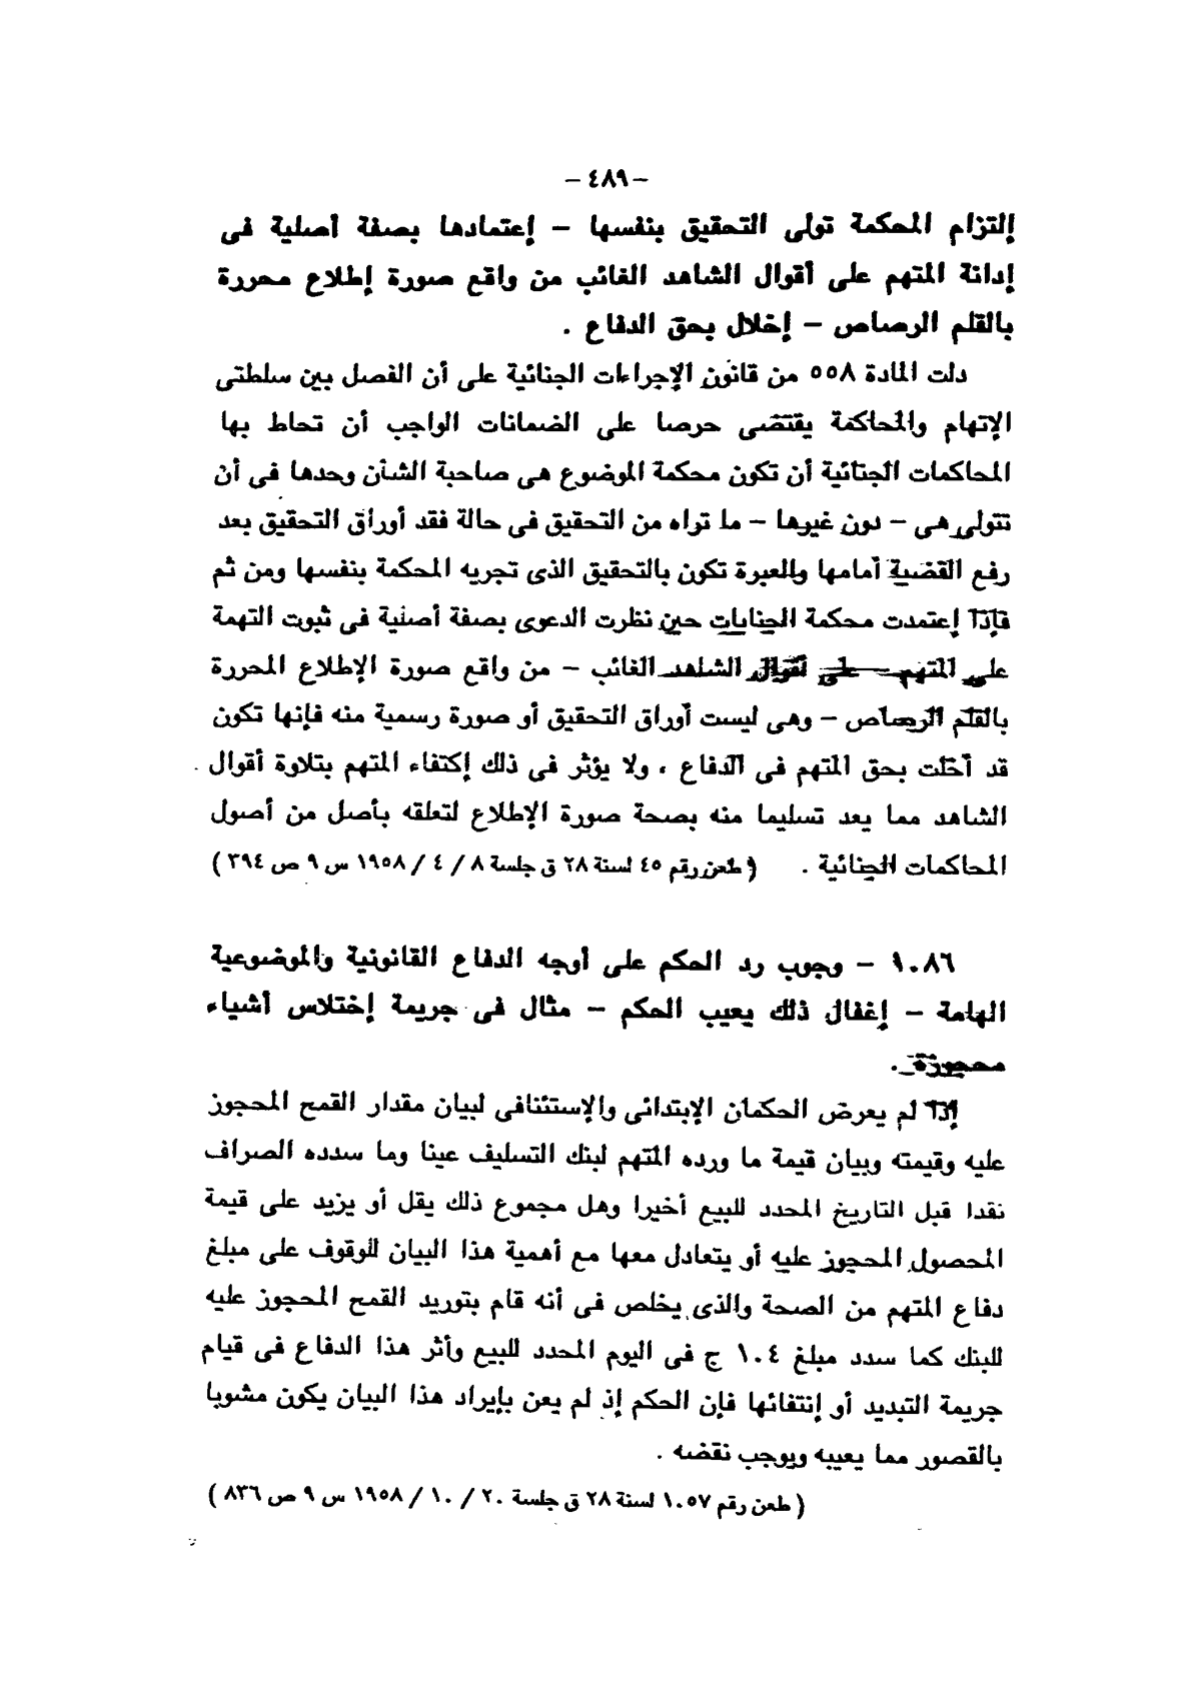 – ٤٨٩ –
إلتزام المحكمة تولى التحقيق بنفسها – إعتمادها بصفة أصلية فى
إدانة المتهم على أقوال الشاهد الغائب من واقع صورة إطلاع محررة
بالقلم الرصاص – إخلال بحق الدفاع .
دلت المادة ٥٥٨ من قانون الإجراءات الجنائية على أن الفصل بين سلطتى
الإتهام والمحاكمة يقتضى حرصا على الضمانات الواجب أن تحاط بها
المحاكمات الجنائية أن تكون محكمة الموضوع هى صاحبة الشأن وحدها فى أن
تتولى هى – دون غيرها – ما تراه من التحقيق فى حالة فقد أوراق التحقيق بعد
رفع القضية أمامها والعبرة تكون بالتحقيق الذى تجريه المحكمة بنفسها ومن ثم
فإذا إعتمدت محكمة الجنايات حين نظرت الدعوى بصفة أصلية فى ثبوت التهمة
على المتهم – على أقوال الشاهد الغائب – من واقع صورة الإطلاع المحررة
بالقلم الرصاص – وهى ليست أوراق التحقيق أو صورة رسمية منه فإنها تكون
قد أخلت بحق المتهم فى الدفاع ، ولا يؤثر فى ذلك إكتفاء المتهم بتلاوة أقوال
الشاهد مما يعد تسليما منه بصحة صورة الإطلاع لتعلقه بأصل من أصول
المحاكمات الجنائية . ( طعن رقم ٤٥ لسنة ٢٨ ق جلسة ٨ / ٤ / ١٩٥٨ س ٩ ص ٣٩٤ )
١٠٨٦ – وجوب رد الحكم على أوجه الدفاع القانونية والموضوعية
الهامة – إغفال ذلك يعيب الحكم – مثال فى جريمة إختلاس أشياء
محجوزة .
إذا لم يعرض الحكمان الإبتدائى والإستئنافى لبيان مقدار القمح المحجوز
عليه وقيمته وبيان قيمة ما ورده المتهم لبنك التسليف عينا وما سدده الصراف
نقدا قبل التاريخ المحدد للبيع أخيرا وهل مجموع ذلك يقل أو يزيد على قيمة
المحصول المحجوز عليه أو يتعادل معها مع أهمية هذا البيان للوقوف على مبلغ
دفاع المتهم من الصحة والذى يخلص فى أنه قام بتوريد القمح المحجوز عليه
للبنك كما سدد مبلغ ١٠٤ ج فى اليوم المحدد للبيع وأثر هذا الدفاع فى قيام
جريمة التبديد أو إنتفائها فإن الحكم إذ لم يعن بإيراد هذا البيان يكون مشوبا
بالقصور مما يعيبه ويوجب نقضه .
( طعن رقم ١٠٥٧ لسنة ٢٨ ق جلسة ٢٠ / ١٠ / ١٩٥٨ س ٩ ص ٨٣٦ )